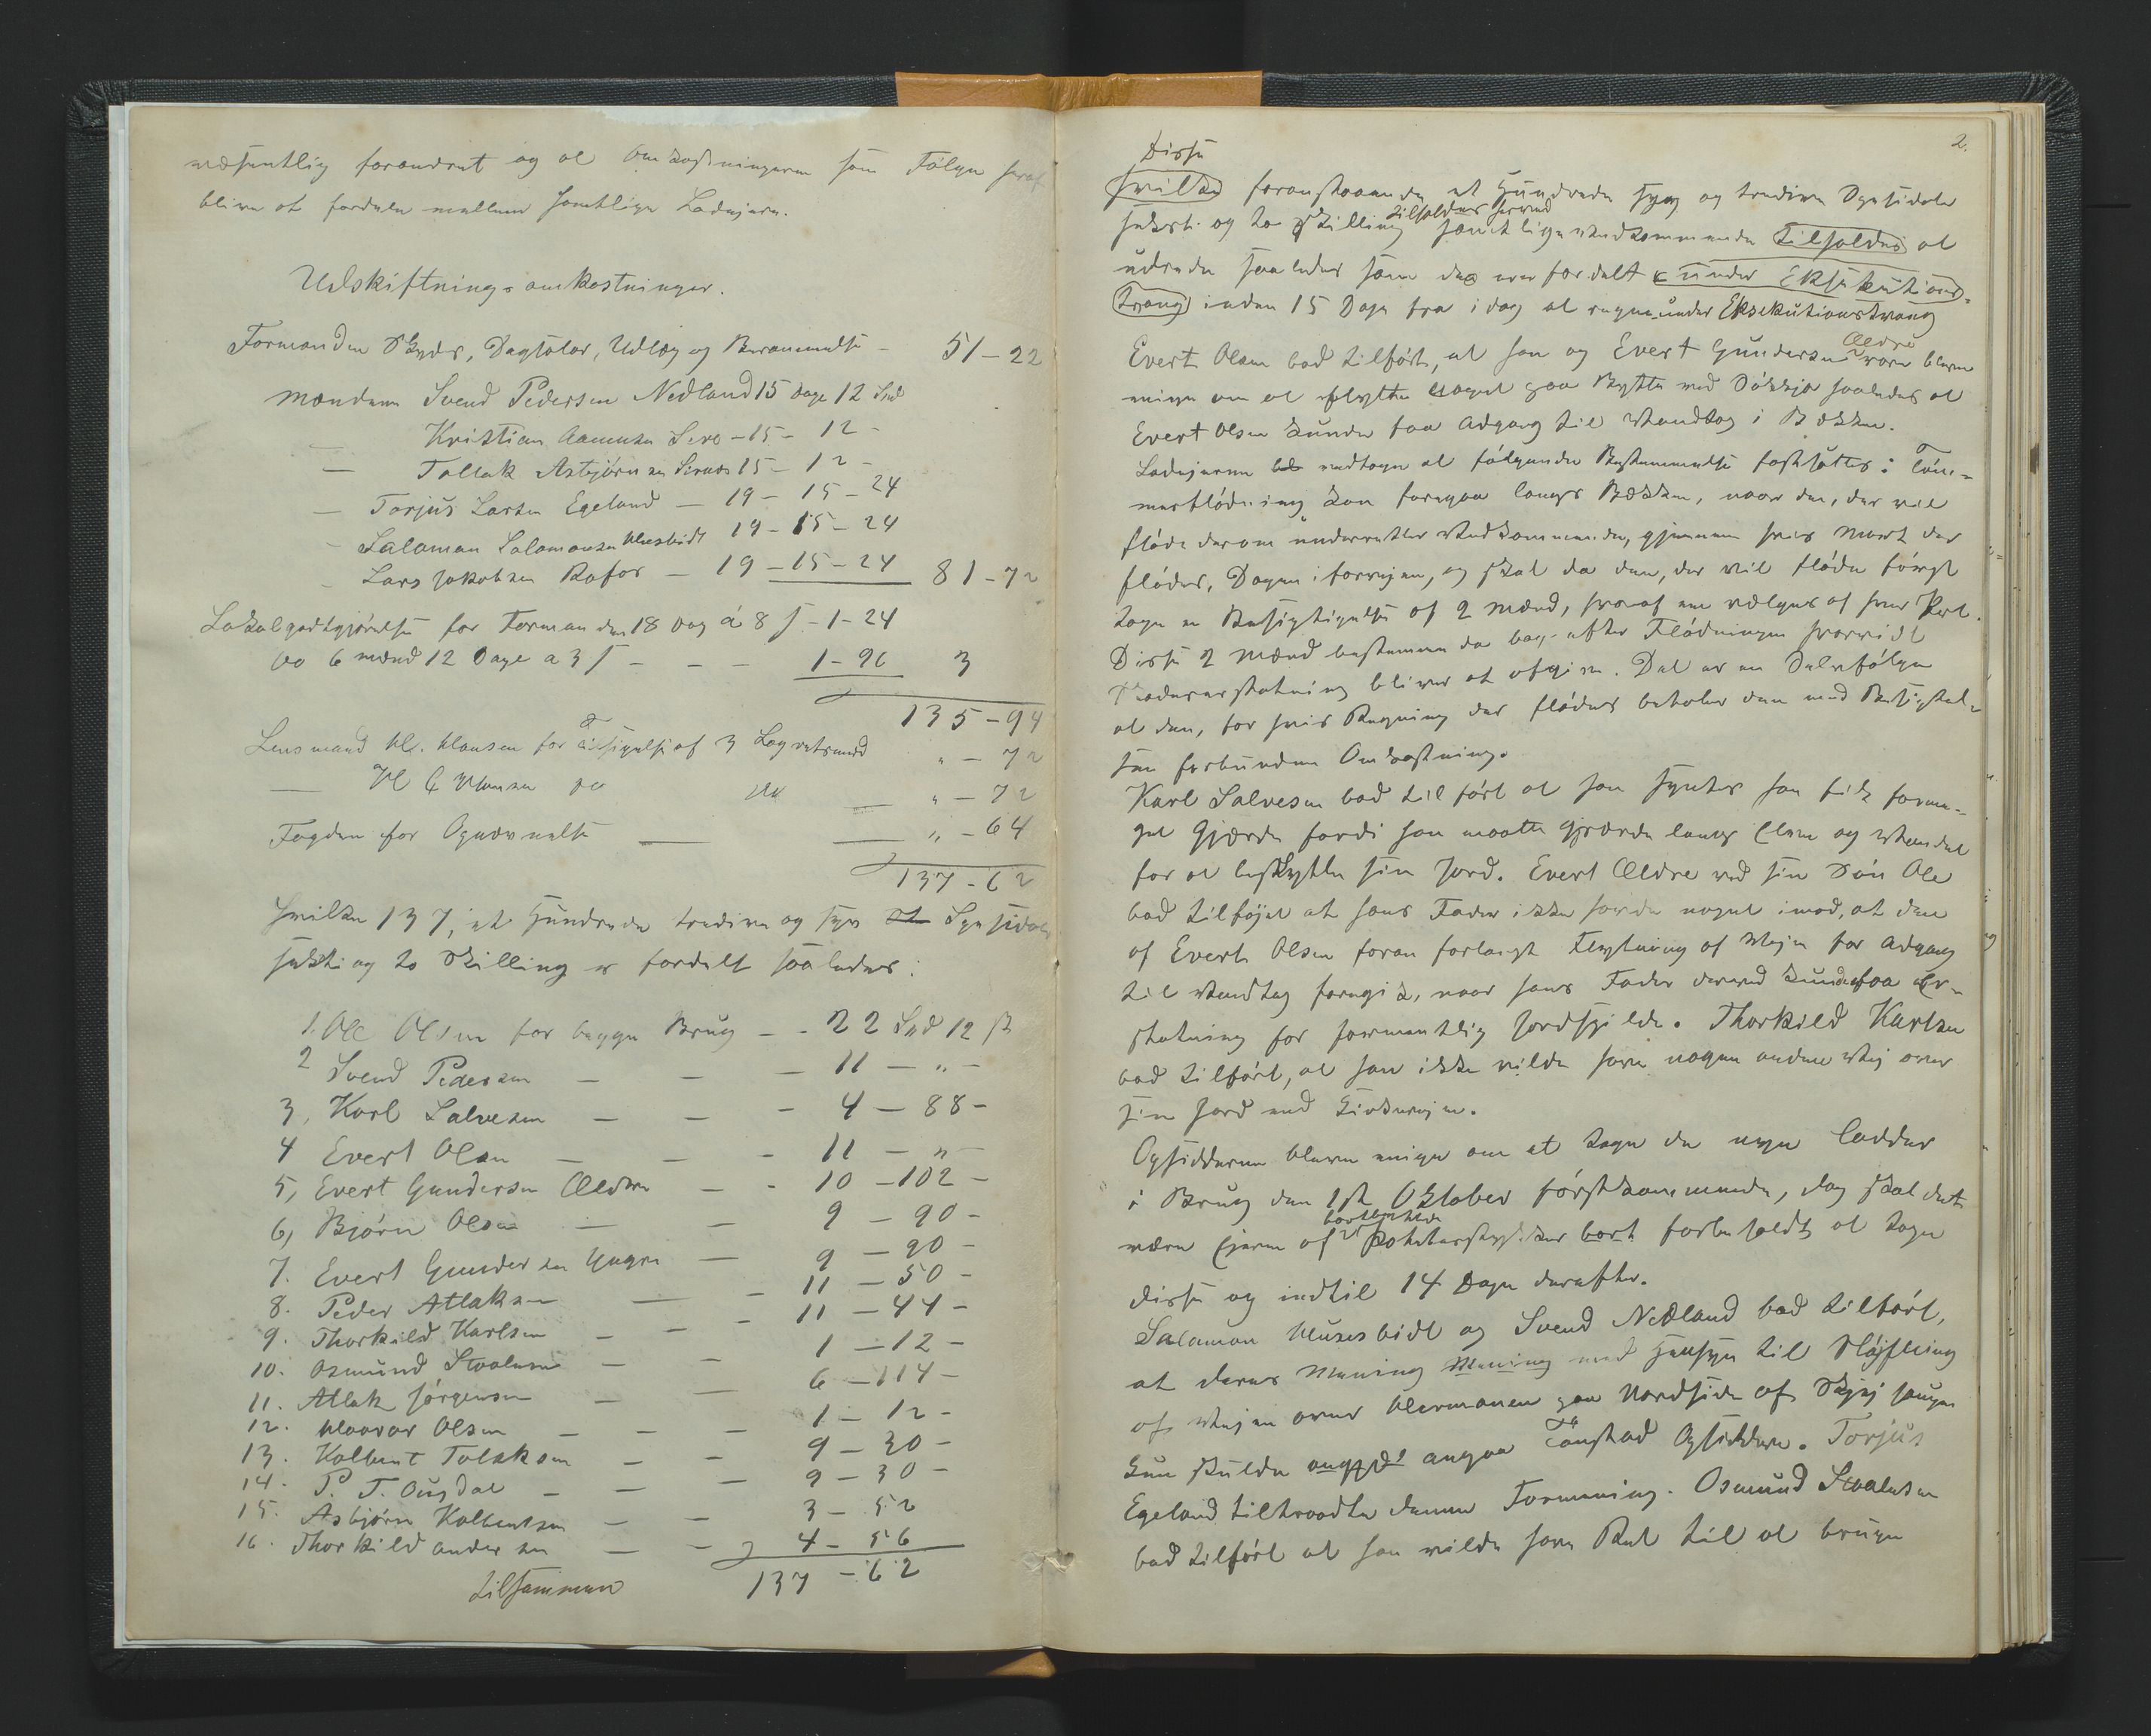 væsentlig forandret og at Omkostningerne som Følge heraf
blive at fordele mellem samtlige Lodejere.
Udskiftnings omkostninger.
Formanden Skyds, Dagsolar, Udlæg og Berammelse - 51-22
Mændene Svend Pedersen Nedland 15 dage 12 Spd
— Kristian Aamusen Sira - 15 - 12 -
— Tollak Asbjørnsen 15 - 12 -
— Torjus Larsen Egeland - 19 - 15 - 24
- Salamon Salamonsen 19 - 15 - 24
- Lars Jakobsen Rafos - 19 - 15 - 24 81-72
Lokalgodtgjørelse for Formanden 18 Dag á 8 ſ - 1 - 24
Do 6 mænd 12 Dage a 3 ſ - - - 1-96 3
135-94
Lensmand Kl. Klausen for tilsigelse af 3 Lagretsmænd " - 72
— Kl Klausen do do — " - 72
Fogden for Opnævnelse — — " - 64
137-62
Hvilke 137, et Hundrede tredive og syv Spesidaler
seksti og to Skilling er fordelt saaledes:
1. Ole Olsen for begge Brug - - 22 Spd 12 ß
2 Svend Pedersen - - - 11 - " -
3, Karl Salvesen - - - 4 - 88 -
4 Evert Olsen - - - 11 - " -
5, Evert Gundersen Ældre - - 10 - 102 -
6, Bjørn Olsen - - 9 - 90 -
7. Evert Gundersen Yngre - 9 - 90 -
8. Peder Atlaksen - - 11 - 50 -
9. Thorkild Karlsen - - - 11 - 44 -
10. Osmund Stvalesen - - 1 - 12 -
11. Atlak Jørgensen - - 6 - 114 -
12. Haavar Olsen - - - 1 - 12 -
13. Kolbent Tolaksen - - 9 - 30 -
14. P. T. Ougdal - - - 9 - 30 -
15. Asbjørn Kolbentsen - - 3 - 52
16. Thorkild Andersen - - 4 - 56
tilsammen 137 - 62
2.
Disse
hvilke foranstaaende et Hundrede syv og tredive Spesidaler
seksti og to Skilling tilholdes herved samtlige vedkommende tilholdes at
udrede saaledes som det er fordelt under Eksekutions-
tvang inden 15 Dage fra i dag at regne under Eksekutionstvang
Evert Olsen bad tilført, at han og Evert Gundersen Ældre vare blevne
enige om at flytte noget paa Bytte ved Dökkja saaledes at
Evert Olsen kunde faa Adgang til Vandtag i Bækken.
Lodejerne vedtoge at følgende Bestemmelse fastsættes: Tøm-
merflødning kan foregaa langs Bækken, naar den, der vil
fløde derom underretter Vedkommende, gjennem hvis Mark der
flødes, Dagen i forvejen, og skal da den, der vil fløde først
tage en Besigtigelse af 2 Mænd, hvoraf en vælges af hver Part.
Disse 2 Mænd bestemme da bag efter Flødningen hvorvidt
Skadeserstatning bliver at afgive. Det er en Selvfølge
at den, for hvis Regning der flødes betaler den med Besigtel-
sen forbundne Omkostning.
Karl Salvesen bad tilført at han syntes han fik forme-
get Gjærde fordi han maatte gjærde langs Elven og Vandet
for at beskytte sin Jord. Evert Ældre ved sin Søn Ole
bad tilføjet at hans Fader ikke havde noget imod, at den
af Evert Olsen foran forlangte Flytning af Vejen for Adgang
til Vandtag foregik, naar hans Fader derved kunde faa Er-
statning for formentlig Jordspilde. Thorkild Karlsen
bad tilført, at han ikke vilde have nogen anden Vej over
sin Jord end Kirkevejen.
Opsidderne bleve enige om at tage de nye Lodder
i Brug den 1ste Oktober førstkommende, dog skal det
være Ejerne af bortbyttede Potetesstykker bort forbeholdt at tage
disse og indtil 14 Dage derefter.
Salamon og Svend Nedland bad tilført,
at deres Mening Mening med Hensyn til Sløjfning
af Vejen over paa Nordside af
kun skulde angaa Tonstad Opsiddere. Torjus
Egeland tiltraadte denne Formening. Osmund Stvalesen
bad tilført at han vilde have Ret til at bruge